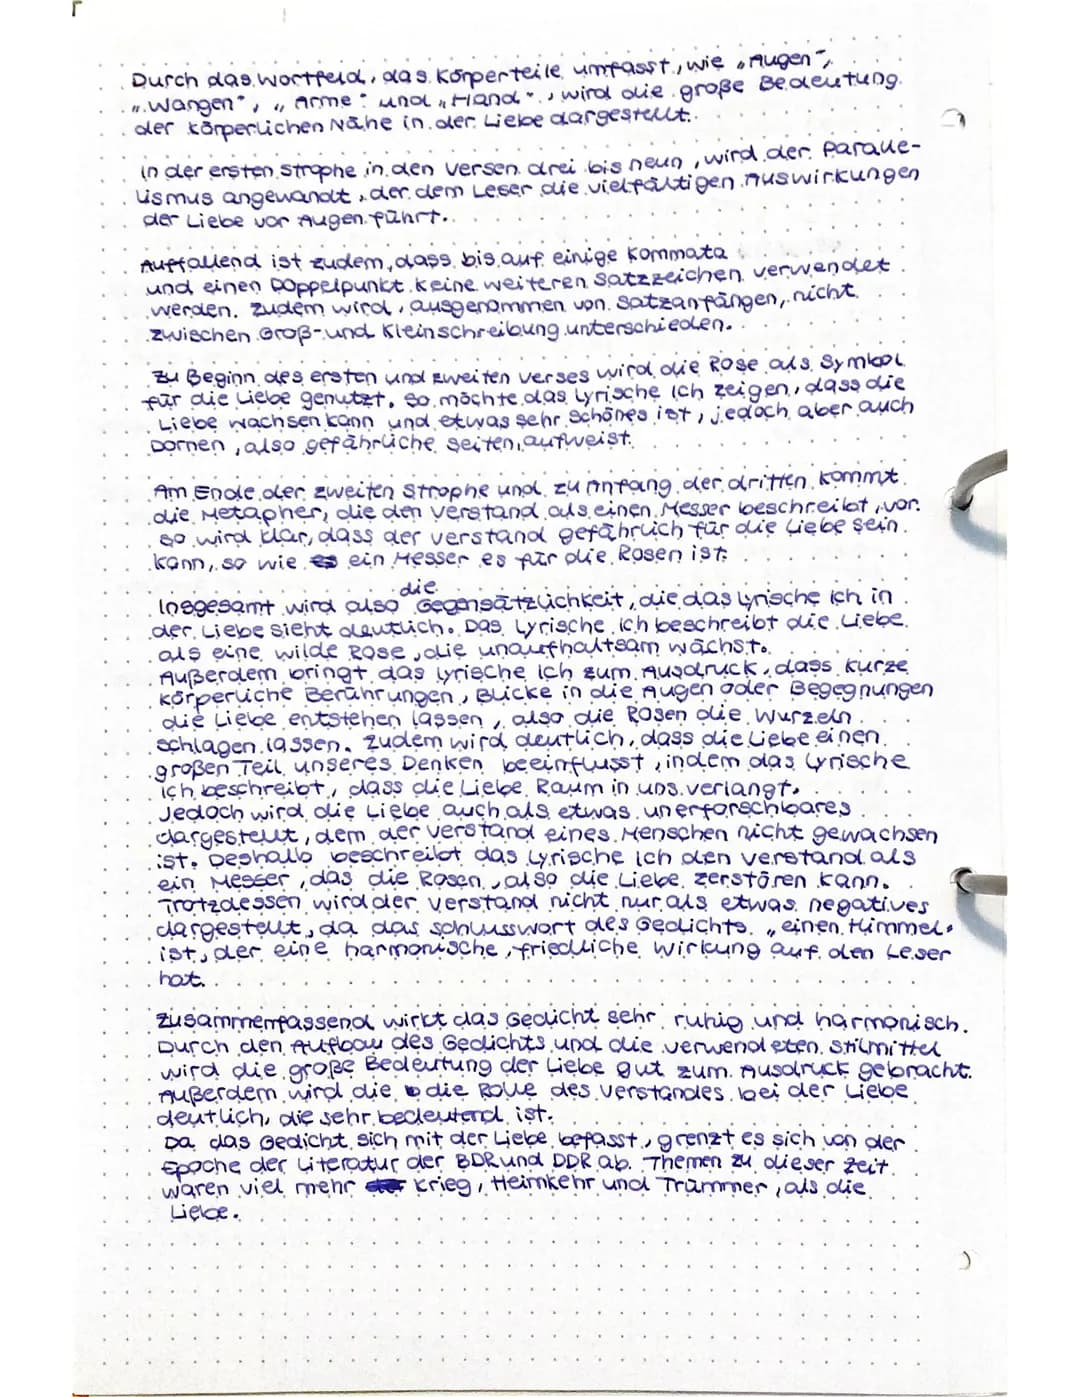 Durch das Wortfeld, das Körperteile umfasst, wie „Augen",
„Wangen", „Arme" und „Hand", wird die große Bedeutung
der körperlichen Nähe in der Liebe dargestellt.
In der ersten Strophe in den Versen drei bis neun, wird der Paralle-
lismus angewandt, der dem Leser die vielfältigen Auswirkungen
der Liebe vor Augen führt.
Auffallend ist zudem, dass bis auf einige Kommata
und einen Doppelpunkt keine weiteren Satzzeichen verwendet
werden. Zudem wird, ausgenommen von Satzanfängen, nicht
zwischen Groß- und Kleinschreibung unterschieden.
Zu Beginn des ersten und zweiten Verses wird die Rose als Symbol
für die Liebe genutzt. So möchte das Lyrische Ich zeigen, dass die
Liebe wachsen kann und etwas sehr Schönes ist, jedoch aber auch
Dornen, also gefährliche Seiten, aufweist.
Am Ende der zweiten Strophe und zu Anfang der dritten kommt
die Metapher, die den Verstand als einen Messer beschreibt, vor.
So wird klar, dass der Verstand gefährlich für die Liebe sein
kann, so wie ein Messer es für die Rosen ist.
Insgesamt wird also die Gegensätzlichkeit, die das Lyrische Ich in
der Liebe sieht deutlich. Das Lyrische Ich beschreibt die Liebe
als eine wilde Rose, die unaufhaltsam wächst.
Außerdem bringt das Lyrische Ich zum Ausdruck, dass kurze
körperliche Berührungen, Blicke in die Augen oder Begegnungen
die Liebe entstehen lassen, also die Rosen die Wurzeln
schlagen lassen. Zudem wird deutlich, dass die Liebe einen
großen Teil unseres Denken beeinflusst, indem das Lyrische
Ich beschreibt, dass die Liebe Raum in uns verlangt.
Jedoch wird die Liebe auch als etwas unerforschbares
dargestellt, dem der Verstand eines Menschen nicht gewachsen
ist. Deshalb beschreibt das Lyrische Ich den Verstand als
ein Messer, das die Rosen, also die Liebe zerstören kann.
Trotzdessen wird der Verstand nicht nur als etwas negatives
dargestellt, da das Schlusswort des Gedichts „einen Himmel"
ist, der eine harmonische, friedliche Wirkung auf den Leser
hat.
Zusammenfassend wirkt das Gedicht sehr ruhig und harmonisch.
Durch den Aufbau des Gedichts und die verwendeten Stilmittel
wird die große Bedeutung der Liebe gut zum Ausdruck gebracht.
Außerdem wird die die Rolle des Verstandes bei der Liebe
deutlich, die sehr bedeutend ist.
Da das Gedicht sich mit der Liebe befasst, grenzt es sich von der
Epoche der Literatur der BDR und DDR ab. Themen zu dieser Zeit
waren viel mehr Krieg, Heimkehr und Trümmer, als die
Liebe.